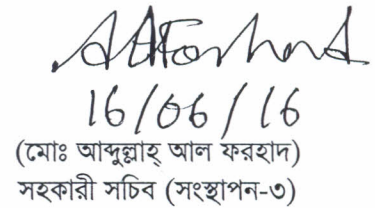 16/06/16
(মোঃ আব্দুল্লাহ্ আল ফরহাদ)
সহকারী সচিব (সংস্থাপন-৩)